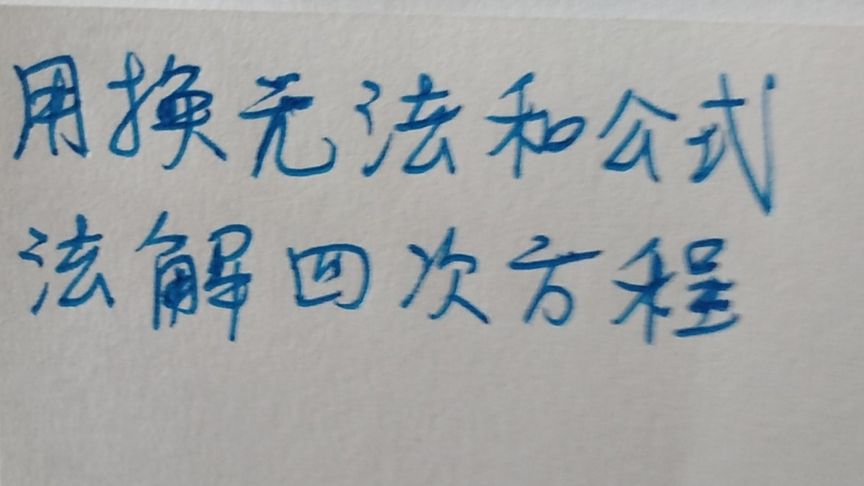 用换元法和公式
法解四次方程